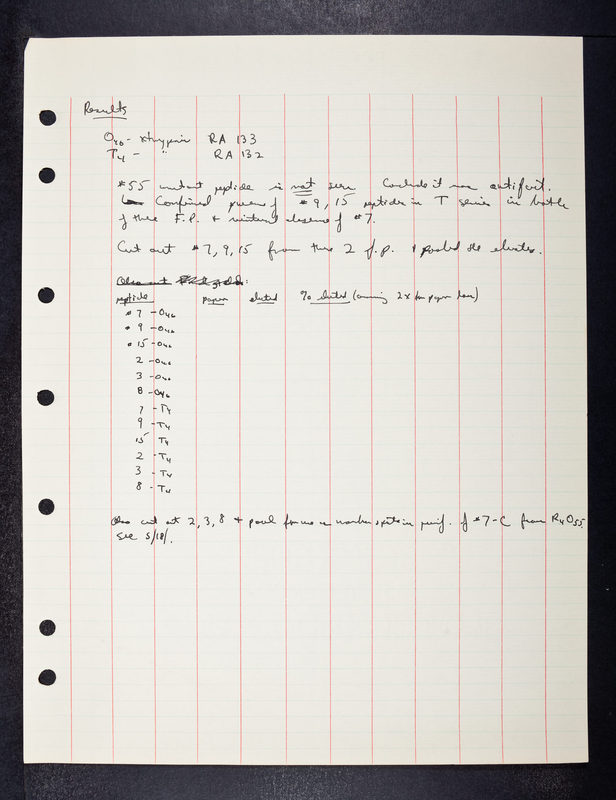 Results
O46 - xtrypsin RA 133
T4 - " RA 132
#55 mutant peptide is not seen. Conclude it was artifact.
Confirmed presence of #9, 15 peptides in T series in both
of these F.P. & mutual absence of #7.
Cut out #7, 9, 15 from these 2 f.p. & pooled the eluates.
Also cut
peptide paper eluted % eluted (assuming 2x for paper loss)
#7 - O46
#9 - O46
#15 - O46
2 - O46
3 - O46
8 - O46
7 - T4
9 - T4
15 T4
2 - T4
3 - T4
8 - T4
Also cut out 2, 3, 8 & pool for use as marker spots in purif. of #7-C from R4O55.
See 5/18/.